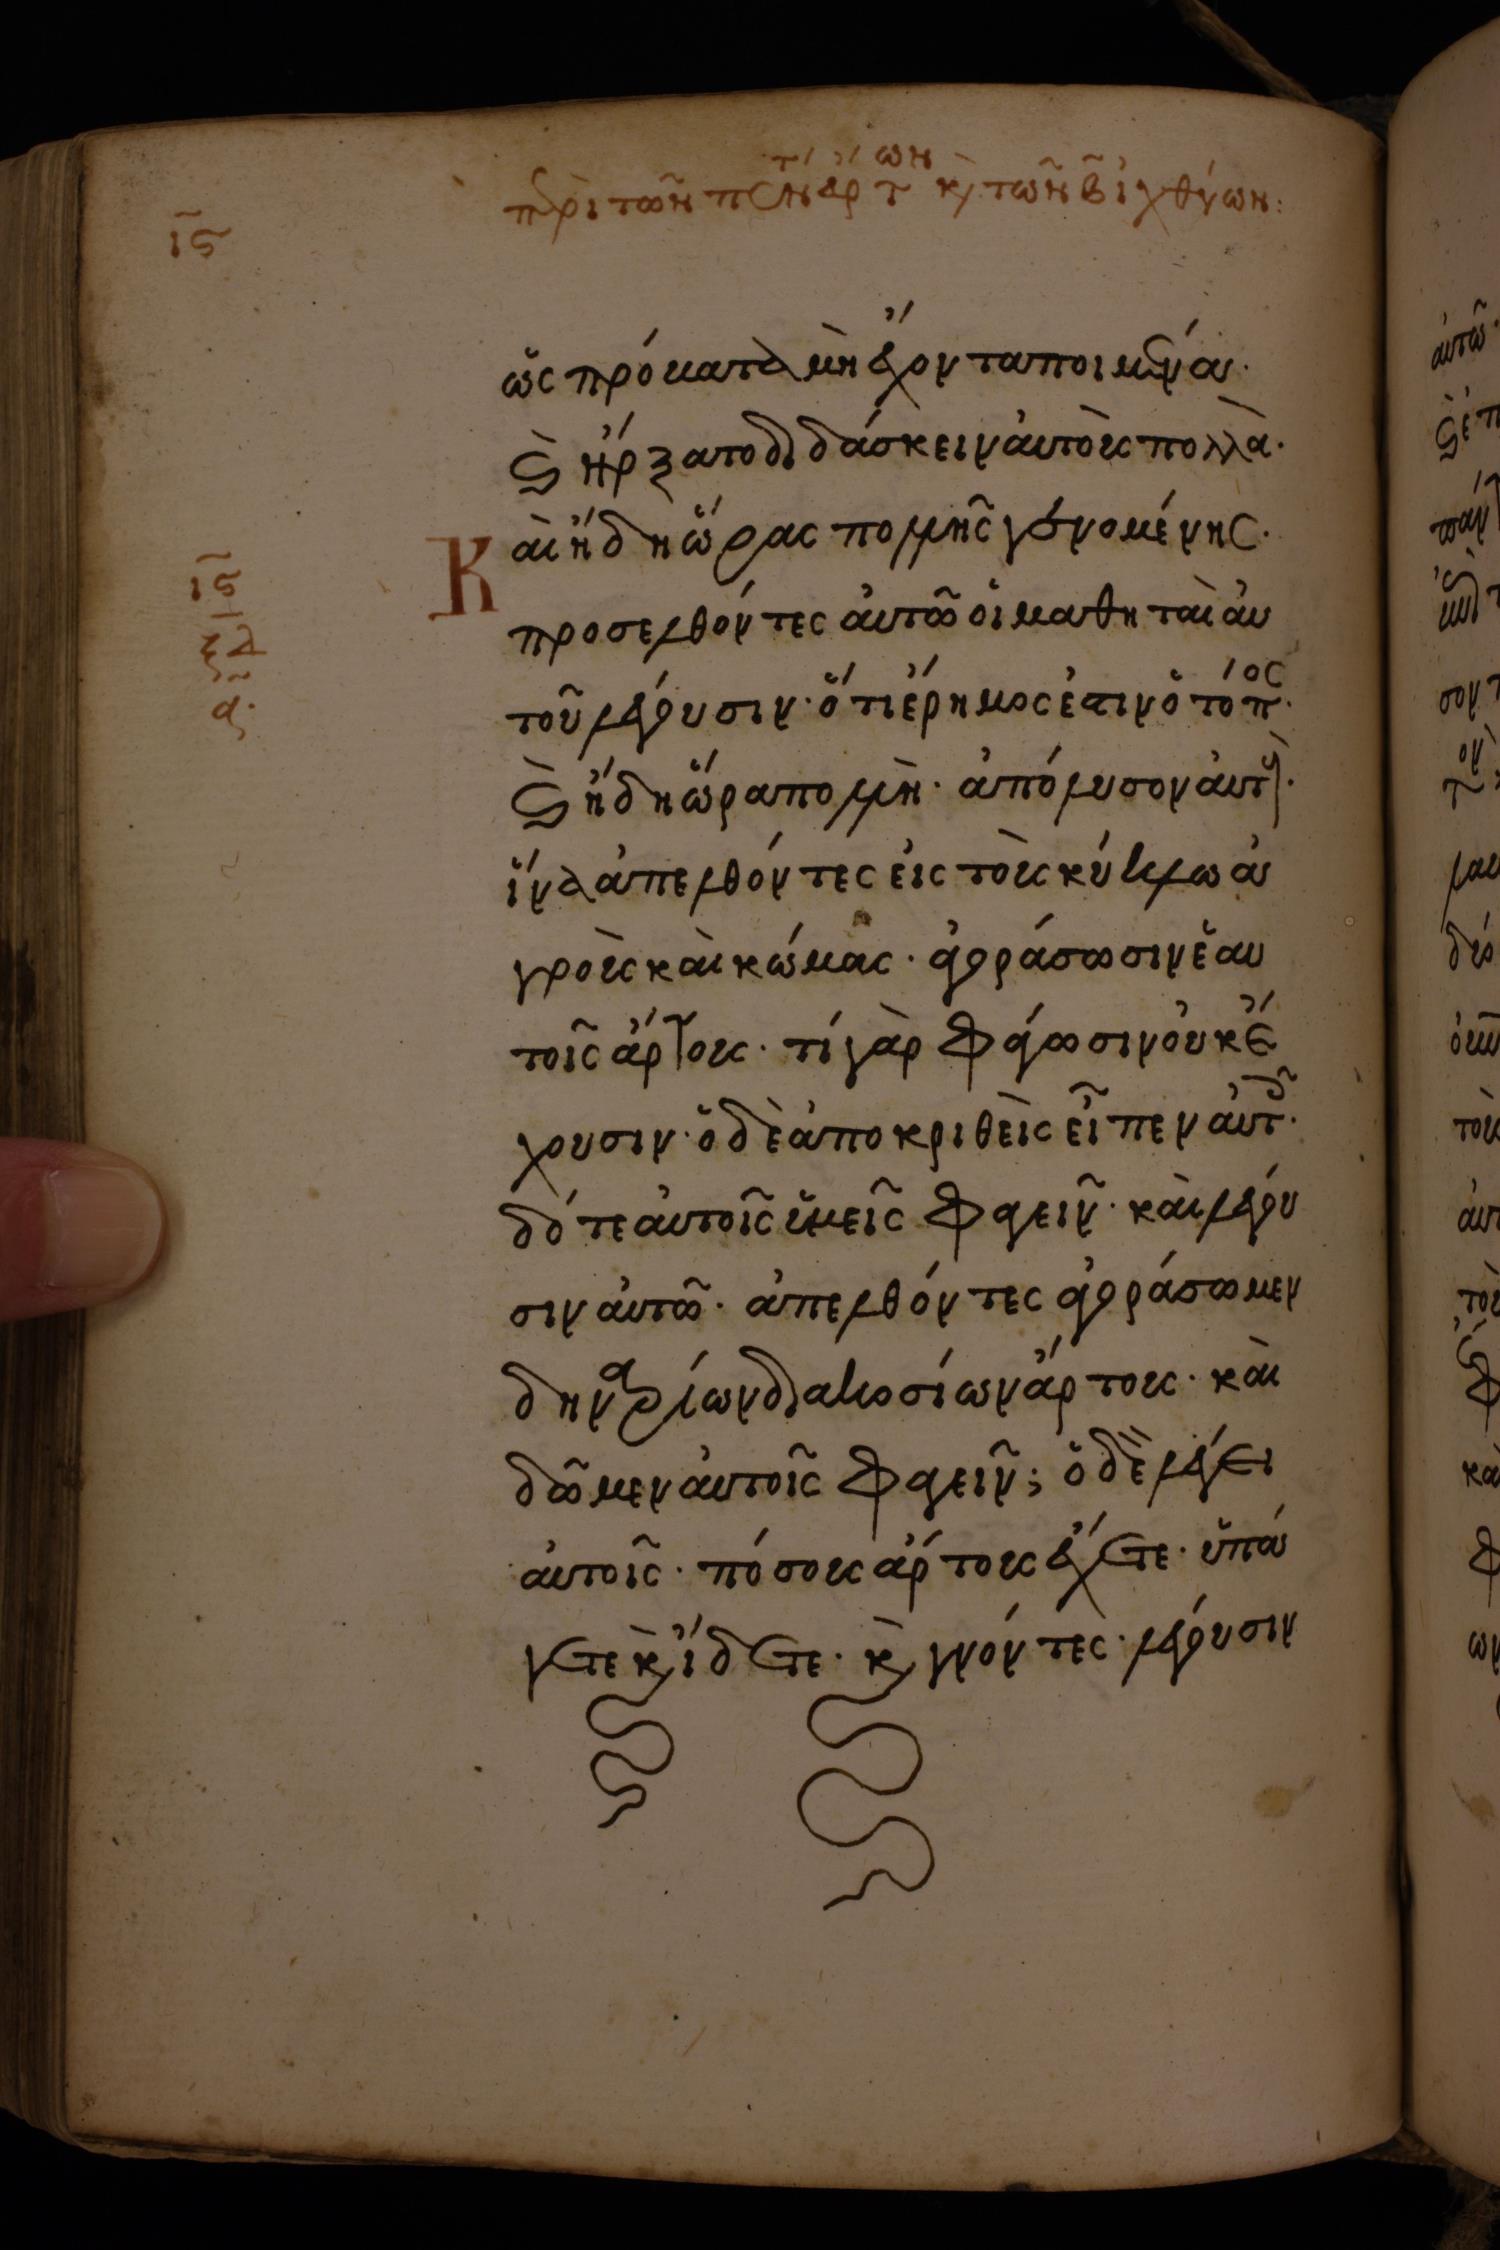 περὶ τῶν πέντε ἄρτων κ τῶν β ἰχθύων:
ις
ὡς πρόβατα μὴ ἔχοντα ποιμένα·
ϛ ἤρξατο διδάσκειν αὐτοὺς πολλὰ·
Καὶ ἤδη ὥρας πολλῆς γενομένης·
ις
ξδ
α·
προσελθόντες αὐτῶ οἱ μαθηταὶ αὐ
τοῦ λέγουσιν· ὅτι ἔρημος ἐστιν ὁ τόπος·
ϛ ἤδη ὥρα πολλὴ· ἀπόλυσον αὐτοὺς·
ἵνα ἀπελθόντες εἰς τοὺς κύκλω ἀ
γροὺς καὶ κώμας· ἀγοράσωσιν ἑαυ
τοῖς ἄρτους· τί γὰρ φάγωσιν οὐκ ἔ
χουσιν· ὁ δὲ ἀποκριθεὶς εἶπεν αὐτοῖς·
δότε αὐτοῖς ὑμεῖς φαγεῖν· καὶ λέγου
σιν αὐτῶ· ἀπελθόντες ἀγοράσωμεν
δηναρίων διακοσίων ἄρτους· καὶ
δῶμεν αὐτοῖς φαγεῖν; ὁ δὲ λέγει
αὐτοῖς· πόσους ἄρτους ἔχετε· ὑπά
γετε κ ἴδετε· κ γνόντες· λέγουσιν